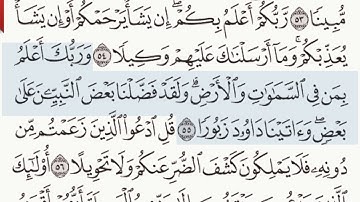 مُّبِينًا ٥٣ رَّبُّكُمْ أَعْلَمُ بِكُمْ ۖ إِن يَشَأْ يَرْحَمْكُمْ أَوْ إِن يَشَأْ
يُعَذِّبْكُمْ ۚ وَمَآ أَرْسَلْنَٰكَ عَلَيْهِمْ وَكِيلًا ٥٤ وَرَبُّكَ أَعْلَمُ
بِمَن فِى ٱلسَّمَٰوَٰتِ وَٱلْأَرْضِ ۗ وَلَقَدْ فَضَّلْنَا بَعْضَ ٱلنَّبِيِّـۧنَ عَلَىٰ
بَعْضٍ ۖ وَءَاتَيْنَا دَاوُۥدَ زَبُورًا ٥٥ قُلِ ٱدْعُوا۟ ٱلَّذِينَ زَعَمْتُم مِّن
دُونِهِۦ فَلَا يَمْلِكُونَ كَشْفَ ٱلضُّرِّ عَنكُمْ وَلَا تَحْوِيلًا ٥٦ أُو۟لَٰٓئِكَ